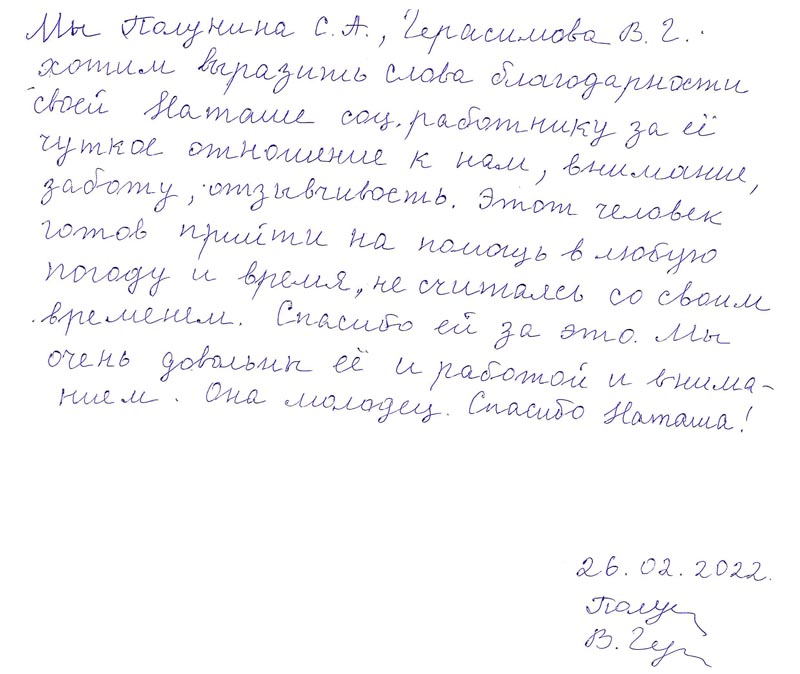 Мы Полунина С.А., Герасимова В.Г.
хотим выразить слова благодарности
своей Наташе соц. работнику за её
чуткое отношение к нам, внимание,
заботу, отзывчивость. Этот человек
готов прийти на помощь в любую
погоду и время, не считаясь со своим
временем. Спасибо ей за это. Мы
очень довольны её и работой и внима-
нием. Она молодец. Спасибо Наташа!
26.02.2022.
Полун
В. Гер